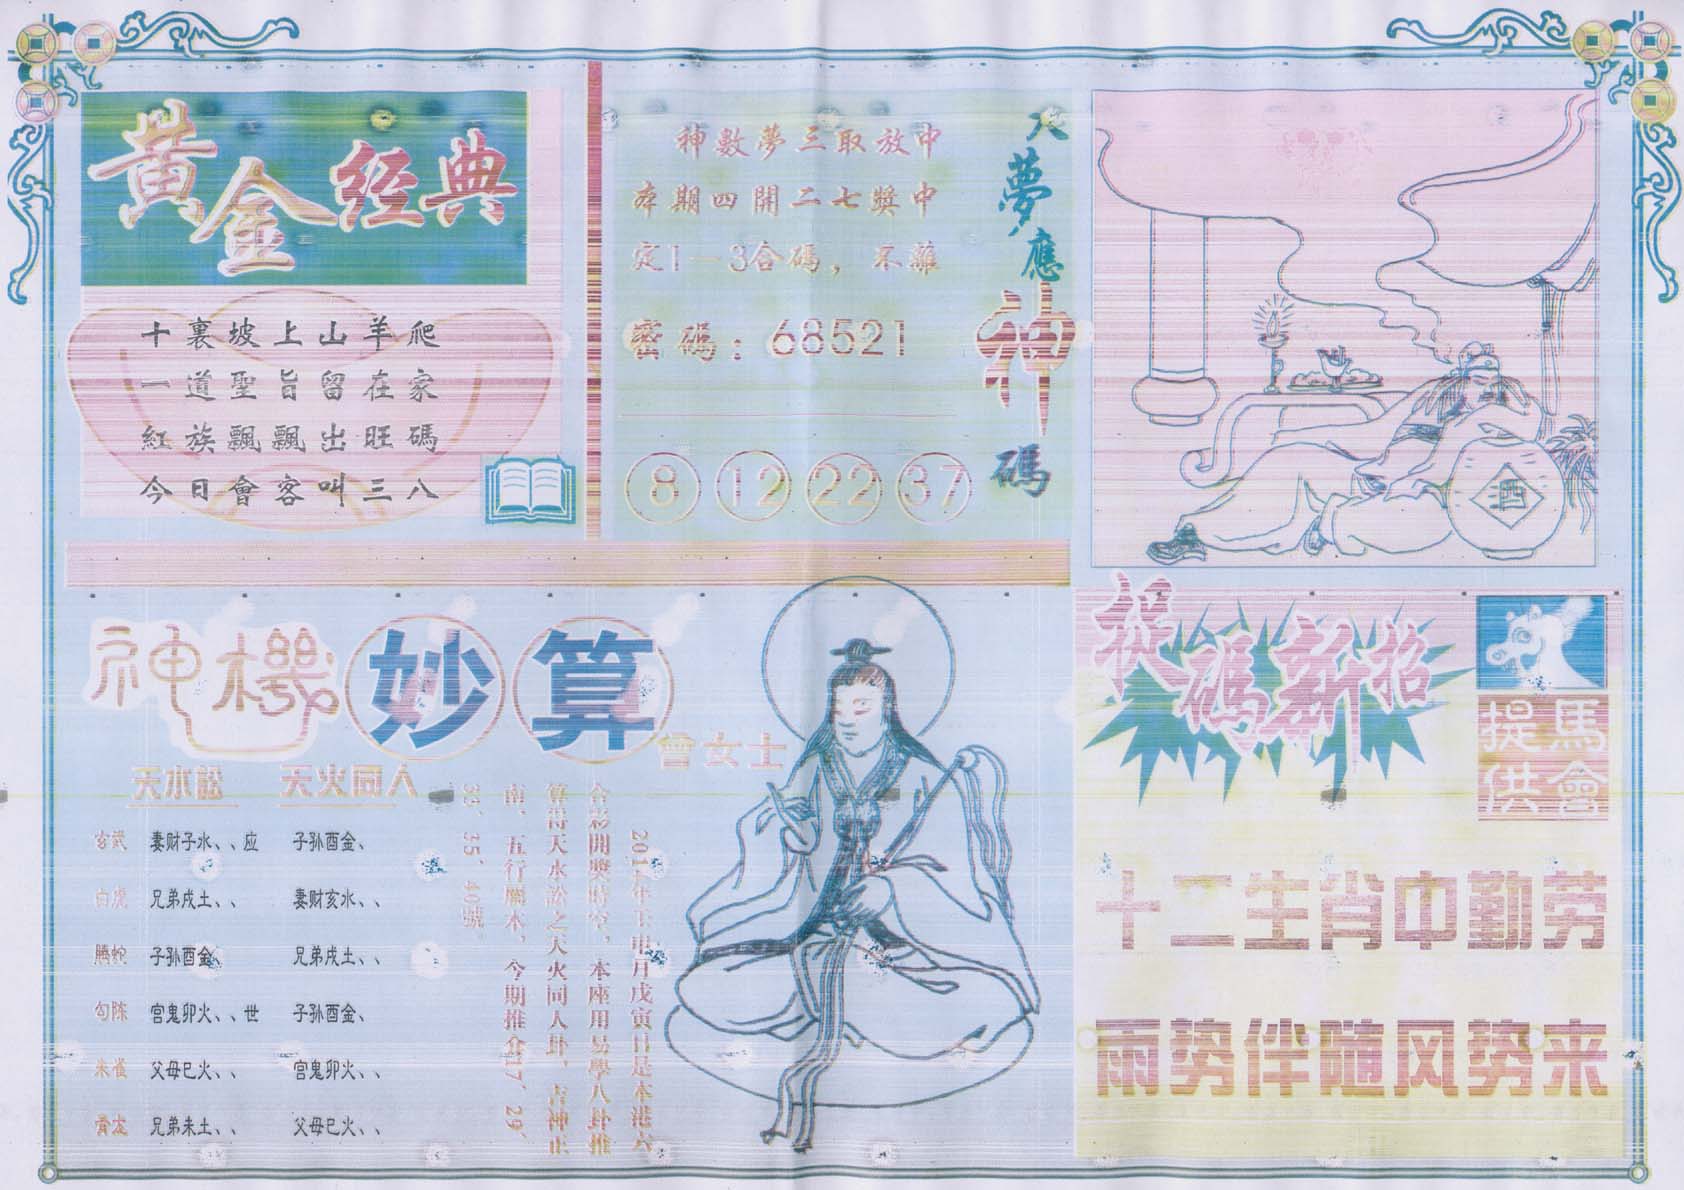 黄金经典
十裏坡上山羊爬
一道聖旨留在家
紅族飄飄出旺碼
今日會客叫三八
神數夢三取放中
本期四開二七獎中
定1一3合碼，不離
密碼：68521
8 12 22 37
夢應神碼
酒
神機妙算
曾女士
天水訟 天火同人
玄武 妻财子水、、应 子孙酉金、
白虎 兄弟戌土、、 妻财亥水、、
腾蛇 子孙酉金、 兄弟戌土、、
勾陈 宫鬼卯火、、世 子孙酉金、
朱雀 父母巳火、、 宫鬼卯火、、
青龙 兄弟未土、、 父母巳火、、
年壬申月戊寅日是本港六
合彩開獎時空，本座用易學八卦推
算得天水訟之天火同人卦，吉神正
南，五行屬木，今期推介17、29、
35、40號。
提碼新招
馬會
提供
十二生肖中勤劳
雨势伴随风势来